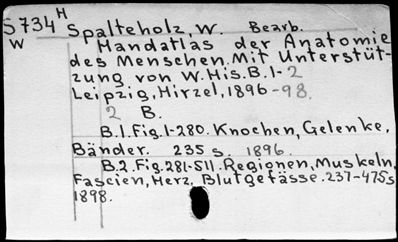 S734 H Spalteholz, W. Bearb.
W Handatlas der Anatomie
des Menschen. Mit Unterstüt-
zung von W. His. B. 1-2
Leipzig, Hirzel, 1896-98.
2 B.
B. 1. Fig. 1-280. Knochen, Gelenke,
Bänder. 235 s. 1896.
B. 2. Fig. 281-511. Regionen, Muskeln,
Fascien, Herz, Blutgefässe. 237-475 s
1898.